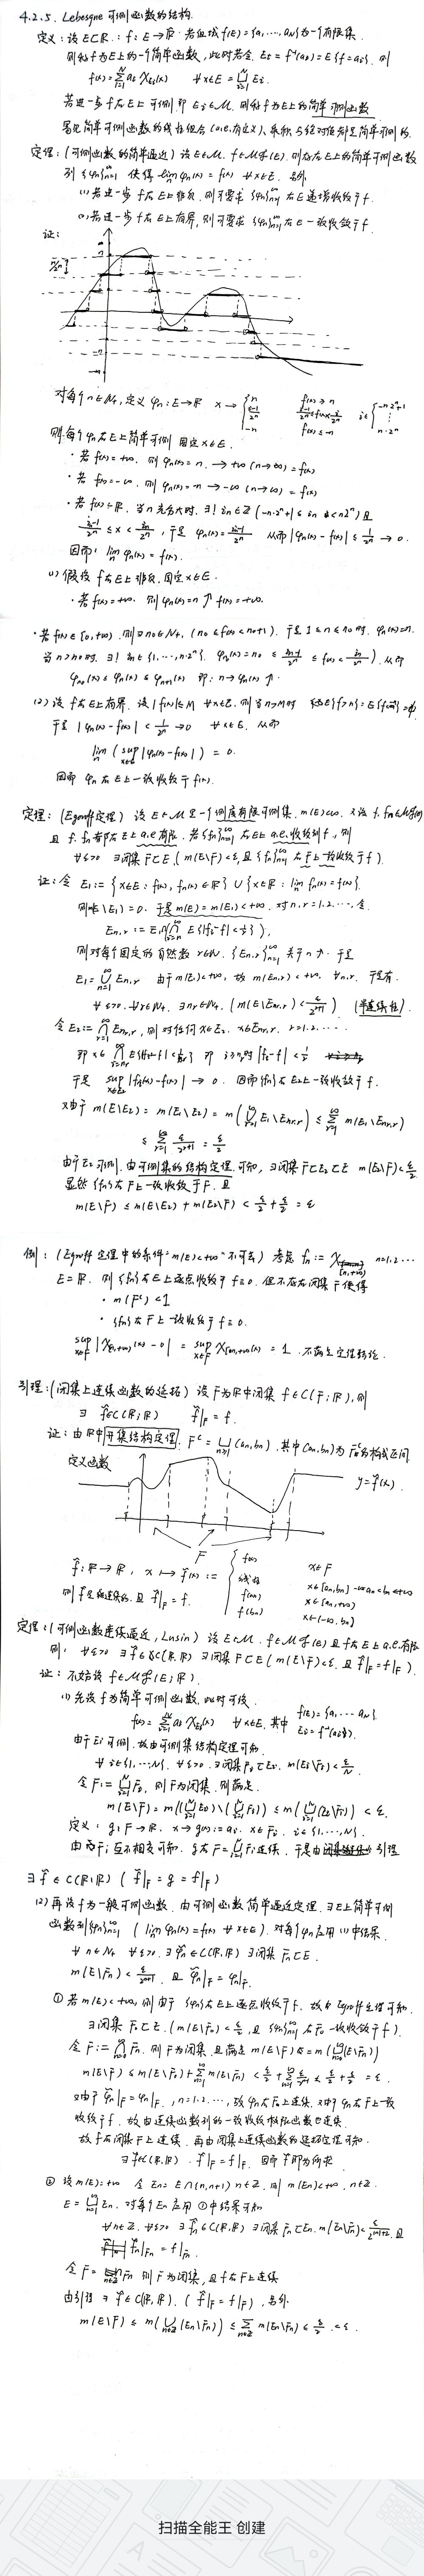 4.2.5. Lebesgue 可测函数的结构.
定义: 设 E⊂ℝ. f: E→ℝ. 若值域 f(E)={a₁,…,a_N} 为一个有限集.
则称 f 为E上的一个简单函数, 此时若令 E_i = f⁻¹(a_i) = E{f=a_i}. 则
f(x)=∑_{i=1}^N a_i χ_{E_i}(x) ∀x∈E = ⋃_{i=1}^N E_i.
若进一步 f 在E上可测, 即 E_i∈M. 则称 f 为E上的简单可测函数
定理: (可测函数的简单逼近) 设 E∈M. f∈M(E). 则存在E上的简单可测函数
列 {φn}_{n=1}^∞ 使得 lim φn(x) = f(x) ∀x∈E. 另外
(1) 若进一步 f 在E上非负, 则可要求 {φn}_{n=1}^∞ 在E递增收敛于 f.
(2) 若进一步 f 在E上有界, 则可要求 {φn}_{n=1}^∞ 在E一致收敛于 f.
证:
对每个 n∈N₊, 定义 φn: E→ℝ x→ { n f(x)≥n
-n f(x)≤-n
则每个 φn 在E上简单可测 固定 x∈E.
· 若 f(x)=+∞. 则 φn(x)=n. →+∞ (n→∞) = f(x)
· 若 f(x)=-∞. 则 φn(x)=-n →-∞ (n→∞) = f(x)
· 若 f(x)∈ℝ. 当 n 充分大时,
从而 |φn(x)-f(x)| ≤ 1/2ⁿ → 0.
因而: lim φn(x) = f(x).
(1) 假设 f 在E上非负. 固定 x∈E.
· 若 f(x)=+∞. 则 φn(x)=n ↑ f(x)=+∞.
· 若 f(x)∈[0,+∞). 则 ∃n₀∈N₊, (n₀≤f(x)<n₀+1). 于是 1≤n≤n₀ 时. φn(x)=n.
(2) 设 f 在E上有界. 设 |f(x)|≤M ∀x∈E. 则当 n>M 时
于是 |φn(x)-f(x)| < 1/2ⁿ →0 ∀x∈E. 从而
lim ( sup |φn(x)-f(x)| ) = 0.
因而 φn 在E上一致收敛于 f(x).
定理: (Egoroff定理) 设 E∈M 是一个测度有限可测集, m(E)<∞.
且 f. fn 都在E上 a.e. 有限. 若 {fn}_{n=1}^∞ 在E上 a.e. 收敛到 f, 则
∀ε>0 ∃闭集 F⊂E. ( m(E\F)<ε, 且 {fn}_{n=1}^∞ 在F上一致收敛于 f ).
证: 令 E₁ := {x∈E: f(x), fn(x)∈ℝ} ∪ {x∈ℝ: lim fn(x)=f(x)}.
则 m(E\E₁)=0. 于是 m(E)=m(E₁)<+∞. 对 n,r=1,2,…, 令
则对每个固定的自然数 r∈N. {E_{n,r}}_{n=1}^∞ 关于 n↗. 于是
E₁=⋃_{n=1}^∞ E_{n,r} 由于 m(E)<+∞, 故 m(E_{n,r})<+∞. ∀n,r. 于是有.
令 E₂ := ⋂_{r=1}^∞ E_{nr,r}, 则对任何 x∈E₂. x∈E_{nr,r}. r=1,2,…
于是 sup |fi(x)-f(x)| → 0. 因而 {fn} 在E₂上一致收敛于 f.
又由于 m(E\E₂) = m(E₁\E₂) = m(⋃_{r=1}^∞ E₁\E_{nr,r}) ≤ ∑_{r=1}^∞ m(E₁\E_{nr,r})
≤ ∑_{r=1}^∞ ε/2^{r+1} = ε/2
由于E₂可测, 由可测集的结构定理, 可知, ∃闭集 F⊂E₂⊂E m(E₂\F)<ε/2.
显然 {fn} 在F上一致收敛于 f. 且
m(E\F) ≤ m(E\E₂)+m(E₂\F) < ε/2+ε/2 = ε
例: (Egoroff 定理中的条件 "m(E)<+∞" 不可去) 考虑 fn := χ_{[n,+∞)} n=1,2…
E=ℝ. 则 {fn} 在E上逐点收敛于 f=0. 但不存在闭集 F 使得
· m(Fᶜ)<1
· {fn} 在F上一致收敛于 f=0.
sup_{x∈F} |χ_{[n,+∞)}(x) - 0| = sup_{x∈F} χ_{[n,+∞)}(x) = 1. 不满足定理结论.
引理: (闭集上连续函数的延拓) 设 F 为ℝ中闭集 f∈C(F;ℝ), 则
∃ f̃∈C(ℝ;ℝ) f̃|_F = f.
证: 由ℝ中开集结构定理, Fᶜ=⋃_{n≥1}(an,bn), 其中 (an,bn) 为Fᶜ的构成区间
定义函数
y=f̃(x).
F
f̃: ℝ→ℝ, x↦f̃(x) := { f(x) x∈F
线性 x∈[an,bn] -∞<an<bn<+∞
f(an) x∈[an,+∞)
f(bn) x∈(-∞,bn]
则 f̃ 是连续的. 且 f̃|_F = f.
定理: (可测函数连续逼近, Lusin) 设 E∈M. f∈M(E) 且 f 在E上 a.e. 有限
则: ∀ε>0 ∃f̃∈C(ℝ,ℝ) ∃闭集 F⊂E ( m(E\F)<ε, 且 f̃|_F = f|_F ).
证: 不妨设 f∈M(E;ℝ).
(1) 先设 f 为简单可测函数, 此时可设.
f(x)=∑_{i=1}^N a_i χ_{E_i}(x) ∀x∈E, 其中 f(E)={a₁,…a_N} E_i=f⁻¹(a_i).
由于 E_i 可测. 故由可测集结构定理可知.
∀i∈{1,…,N}. ∀ε>0. ∃闭集 F_i⊂E_i. m(E_i\F_i)<ε/N.
令 F:=⋃_{i=1}^N F_i, 则F为闭集, 则满足.
m(E\F)=m((⋃E_i)\(⋃F_i)) ≤ m(⋃_{i=1}^N(E_i\F_i)) < ε.
定义: g: F→ℝ. x→g(x):=a_i. x∈F_i. i∈{1,…,N}.
由于 F_i 互不相交可知. g 在 F=⋃F_i 连续. 于是由引理
∃f̃∈C(ℝ;ℝ) ( f̃|_F = g = f|_F )
(2) 再设 f 为一般可测函数. 由可测函数简单逼近定理. ∃E上简单可测
函数列 {φn}_{n=1}^∞ ( lim φn(x)=f(x) ∀x∈E ). 对每个 φn 应用 (1) 中结果.
∀n∈N₊ ∀ε>0. ∃φ̃n∈C(ℝ;ℝ) ∃闭集 Fn⊂E.
m(E\Fn) < ε/2^{n+1}. 且 φ̃n|_F = φn|_F.
① 若 m(E)<+∞, 则由于 {φn} 在E上逐点收敛于 f. 故由 Egoroff 定理可知.
∃闭集 F₀⊂E. ( m(E\F₀)<ε/2, 且 {φn}_{n=1}^∞ 在F₀一致收敛于 f ).
令 F:=⋂_{n=0}^∞ Fn. 则F为闭集. 且满足 m(E\F)=m(⋃_{n=0}^∞(E\Fn))
又由于 φ̃n|_F = φn|_F, n=1,2,…, 故 φn 在F上连续. 又由于 φn 在F上一致
收敛于 f. 故由连续函数列的一致收敛极限函数也连续.
故 f 在闭集F上连续. 再由闭集上连续函数的延拓定理可知
∃f̃∈C(ℝ,ℝ). f̃|_F = f|_F. 因而 f̃ 即为所求
② 设 m(E)=+∞ 令 En=E∩[n,n+1) n∈Z. 则 m(En)<+∞, n∈Z.
E=⋃En. 对每个En应用 ① 中结果可知
∀n∈Z. ∀ε>0 ∃f̃n∈C(ℝ,ℝ) ∃闭集 Fn⊂En. m(En\Fn)<ε/2^{|n|+2}, 且
f̃n|_{Fn} = f|_{Fn}.
令 F=⋃Fn 则F为闭集, 且 f 在F上连续
由引理 ∃f̃∈C(ℝ,ℝ). ( f̃|_F = f|_F ), 另外.
扫描全能王 创建